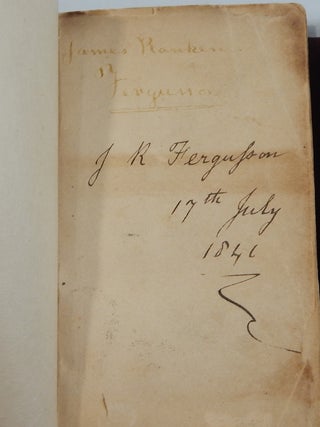 James Ranken
17
Fergusson
J R Ferguſson
17th July
1841